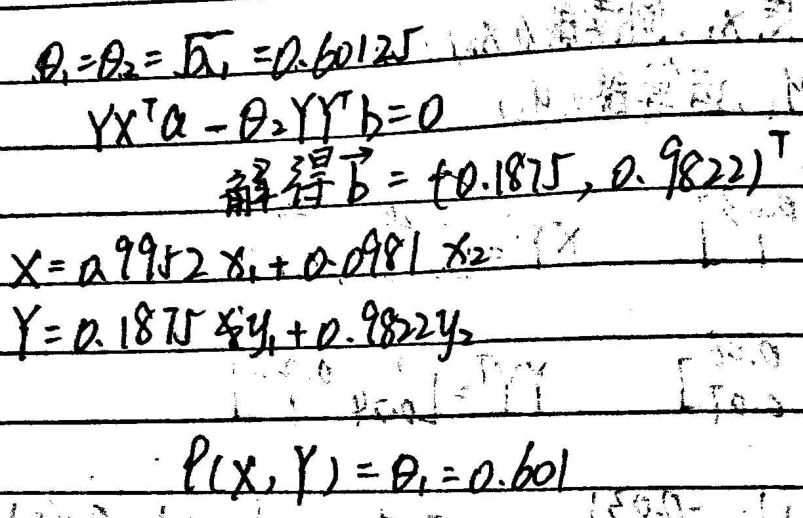 θ₁=θ₂=√λ₁=0.60125
YXᵀa-θ₂YYᵀb=0
解得b⃗=(-0.1875,0.9822)ᵀ
X=0.9952x₁+0.0981x₂
Y=0.1875y₁+0.9822y₂
ρ(X,Y)=θ₁=0.601